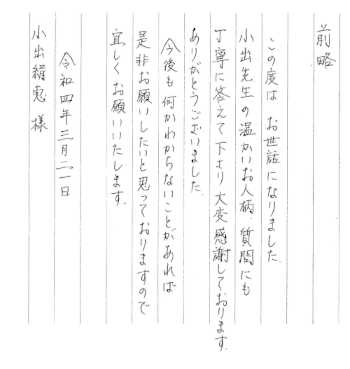 前略
この度は お世話になりました.
小出先生の温かいお人柄、質問にも
丁寧に答えて下さり大変感謝しております.
ありがとうございました.
今後も何かわからないことがあれば
是非お願いしたいと思っておりますので
宜しくお願いいたします.
令和四年三月二一日
小出絹恵 様